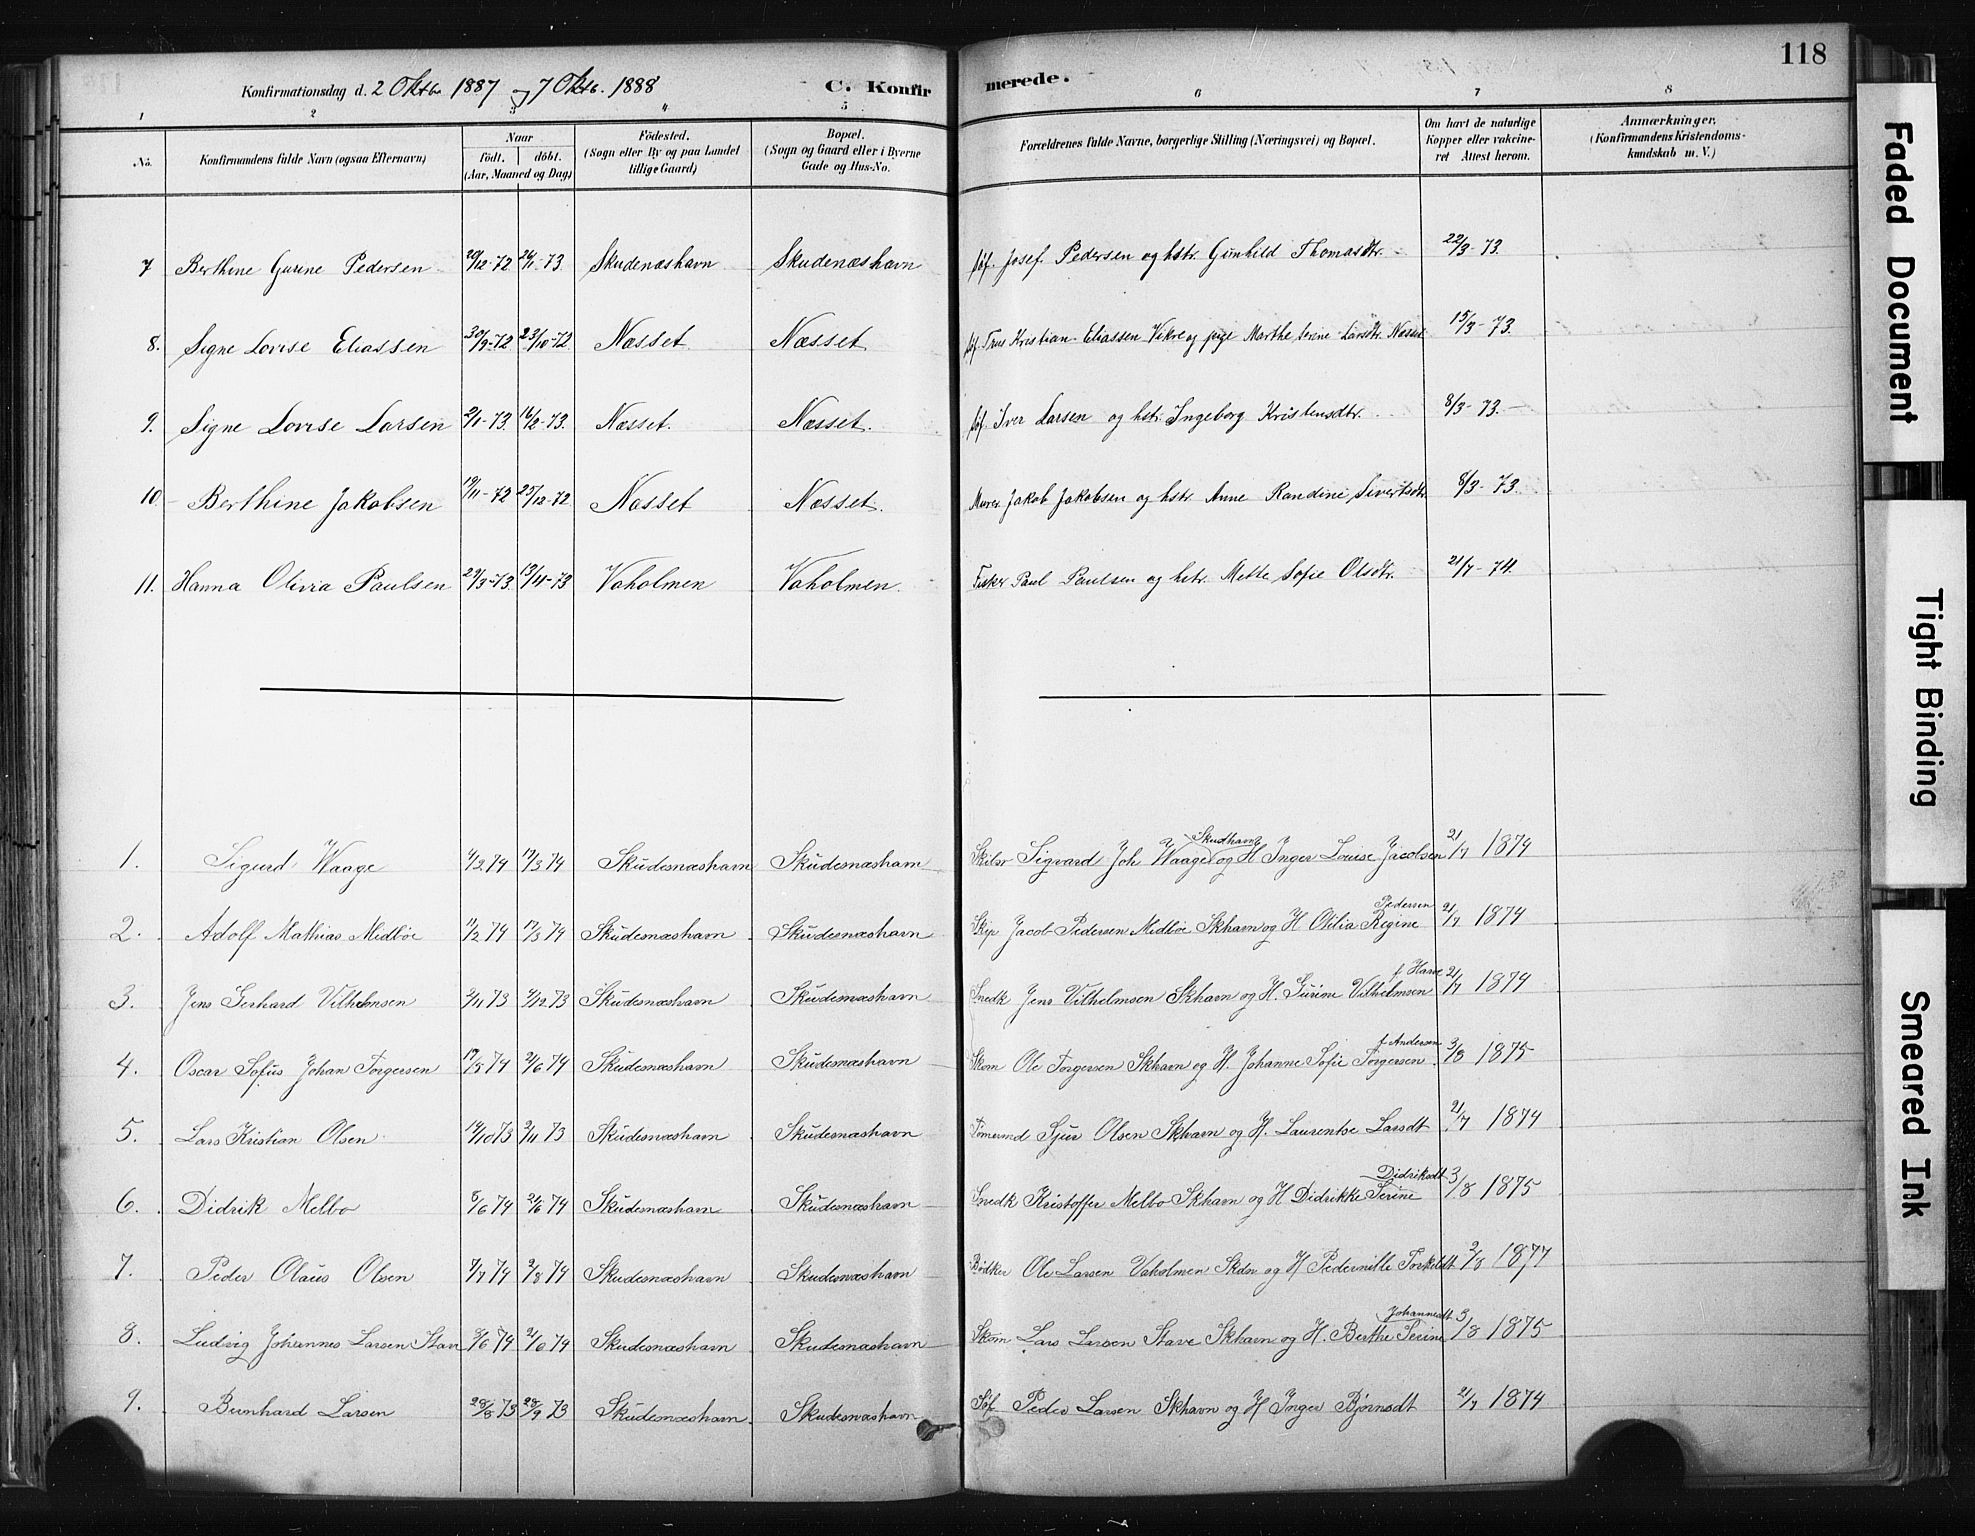 118
Konfirmationsdag d. 2 Oktbr 1887 og 7 Oktb. 1888 C. Konfirmerede.
1 2 3 4 5 6 7 8
No. Konfirmandens fulde Navn (ogsaa Efternavn) Naar födt. döbt. (Aar, Maaned og Dag) Födested. (Sogn eller By og paa Landet tillige Gaard) Bopæl. (Sogn og Gaard eller i Byerne Gade og Hus-No. Forældrenes fulde Navne, borgerlige Stilling (Næringsvei) og Bopæl. Om havt de naturlige Kopper eller vakcineret Attest herom. Anmærkninger. (Konfirmandens Kristendomskundskab m. V.)
7 Berthine Gurine Pedersen 20/12-72 26/1-73. Skudenæshavn Skudenæshavn söf. Josef Pedersen og hstr. Gunhild Thomasdtr. 22/3-73.
8. Signe Lovise Eliassen 30/9-72 23/10-72 Næsset Næsset söf. Kristian Eliassen Vikre og pige Marthe Serine Larsdtr. Næsset 15/3-73.
9. Signe Lovise Larsen 2/1-73. 16/2-73. Næsset. Næsset. söf. Iver Larsen og hstr. Ingeborg Kristensdtr. 8/3-73.-
10 Berthine Jakobsen 19/11-72 25/12-72 Næsset Næsset. Murer Jakob Jakobsen og hstr. Anne Randine Sivertsdtr 8/3-73.
11. Hanna Olivia Paulsen 29/3-73. 13/4-73 Vaholmen Vaholmen. Fisker Paul Paulsen og hstr. Mette Sofie Olsdtr. 21/7-74.
1. Sigurd Waage 4/2 74 17/3 74 Skudesnæshavn Skudesnæshavn Sigvard Joh Waage Skudhavn og H Inger Louise Jacobsen 21/7 1874
2. Adolf Mathias Midböe 11/2 74 17/3 74 Skudesnæshavn Skudesnæshavn Skip Jacob Pedersen Midböe Skhavn og H Otilia Regine Pedersen 21/7 1874
3. Jens Gerhard Vilhelmsen 9/11 73 /12 73 Skudesnæshavn Skudesnæshavn Snedk Jens Vilhelmsen Skhavn og H. Gurine Vilhelmsen 21/7 1874
4. Oscar Sofus Johan Torgersen 17/5 74 2/6 74 Skudesnæshavn Skudesnæshavn Skom Ole Torgersen Skhavn og H. Johanne Sofie Torgersen f Andersen 3/8 1875
5. Lars Kristian Olsen 14/10 73 2/11 73 Skudesnæshavn Skudesnæshavn Tömermd Sjur Olsen Skhavn og H. Laurentse Larsdt 21/7 1874
6. Didrik Melbo 5/6 74 2/6 74 Skudesnæshavn Skudesnæshavn Snedk Kristoffer Melbo Skhavn og H Didrikke Serine Didriksdt 3/8 1875
7. Peder Olaus Olsen 7/7 74 2/8 74 Skudesnæshavn Skudesnæshavn Bödker Ole Larsen Vaholmen Skdn og H Pedernille Torkildt 2/8 1877
8. Ludvig Johannes Larsen Stav 8/6 74 21/6 74 Skudesnæshavn Skudesnæshavn Skom Lars Larsen Stave Skhavn og H. Berthe Serine Johannesdt 3/8 1875
9. Bernhard Larsen 28/8 73 28/9 73 Skudesnæshavn Skudesnæshavn Söf Peder Larsen Skhavn og H Inger Bjørnsdt 21/7 1874
Faded Document
Tight Binding
Smeared Ink